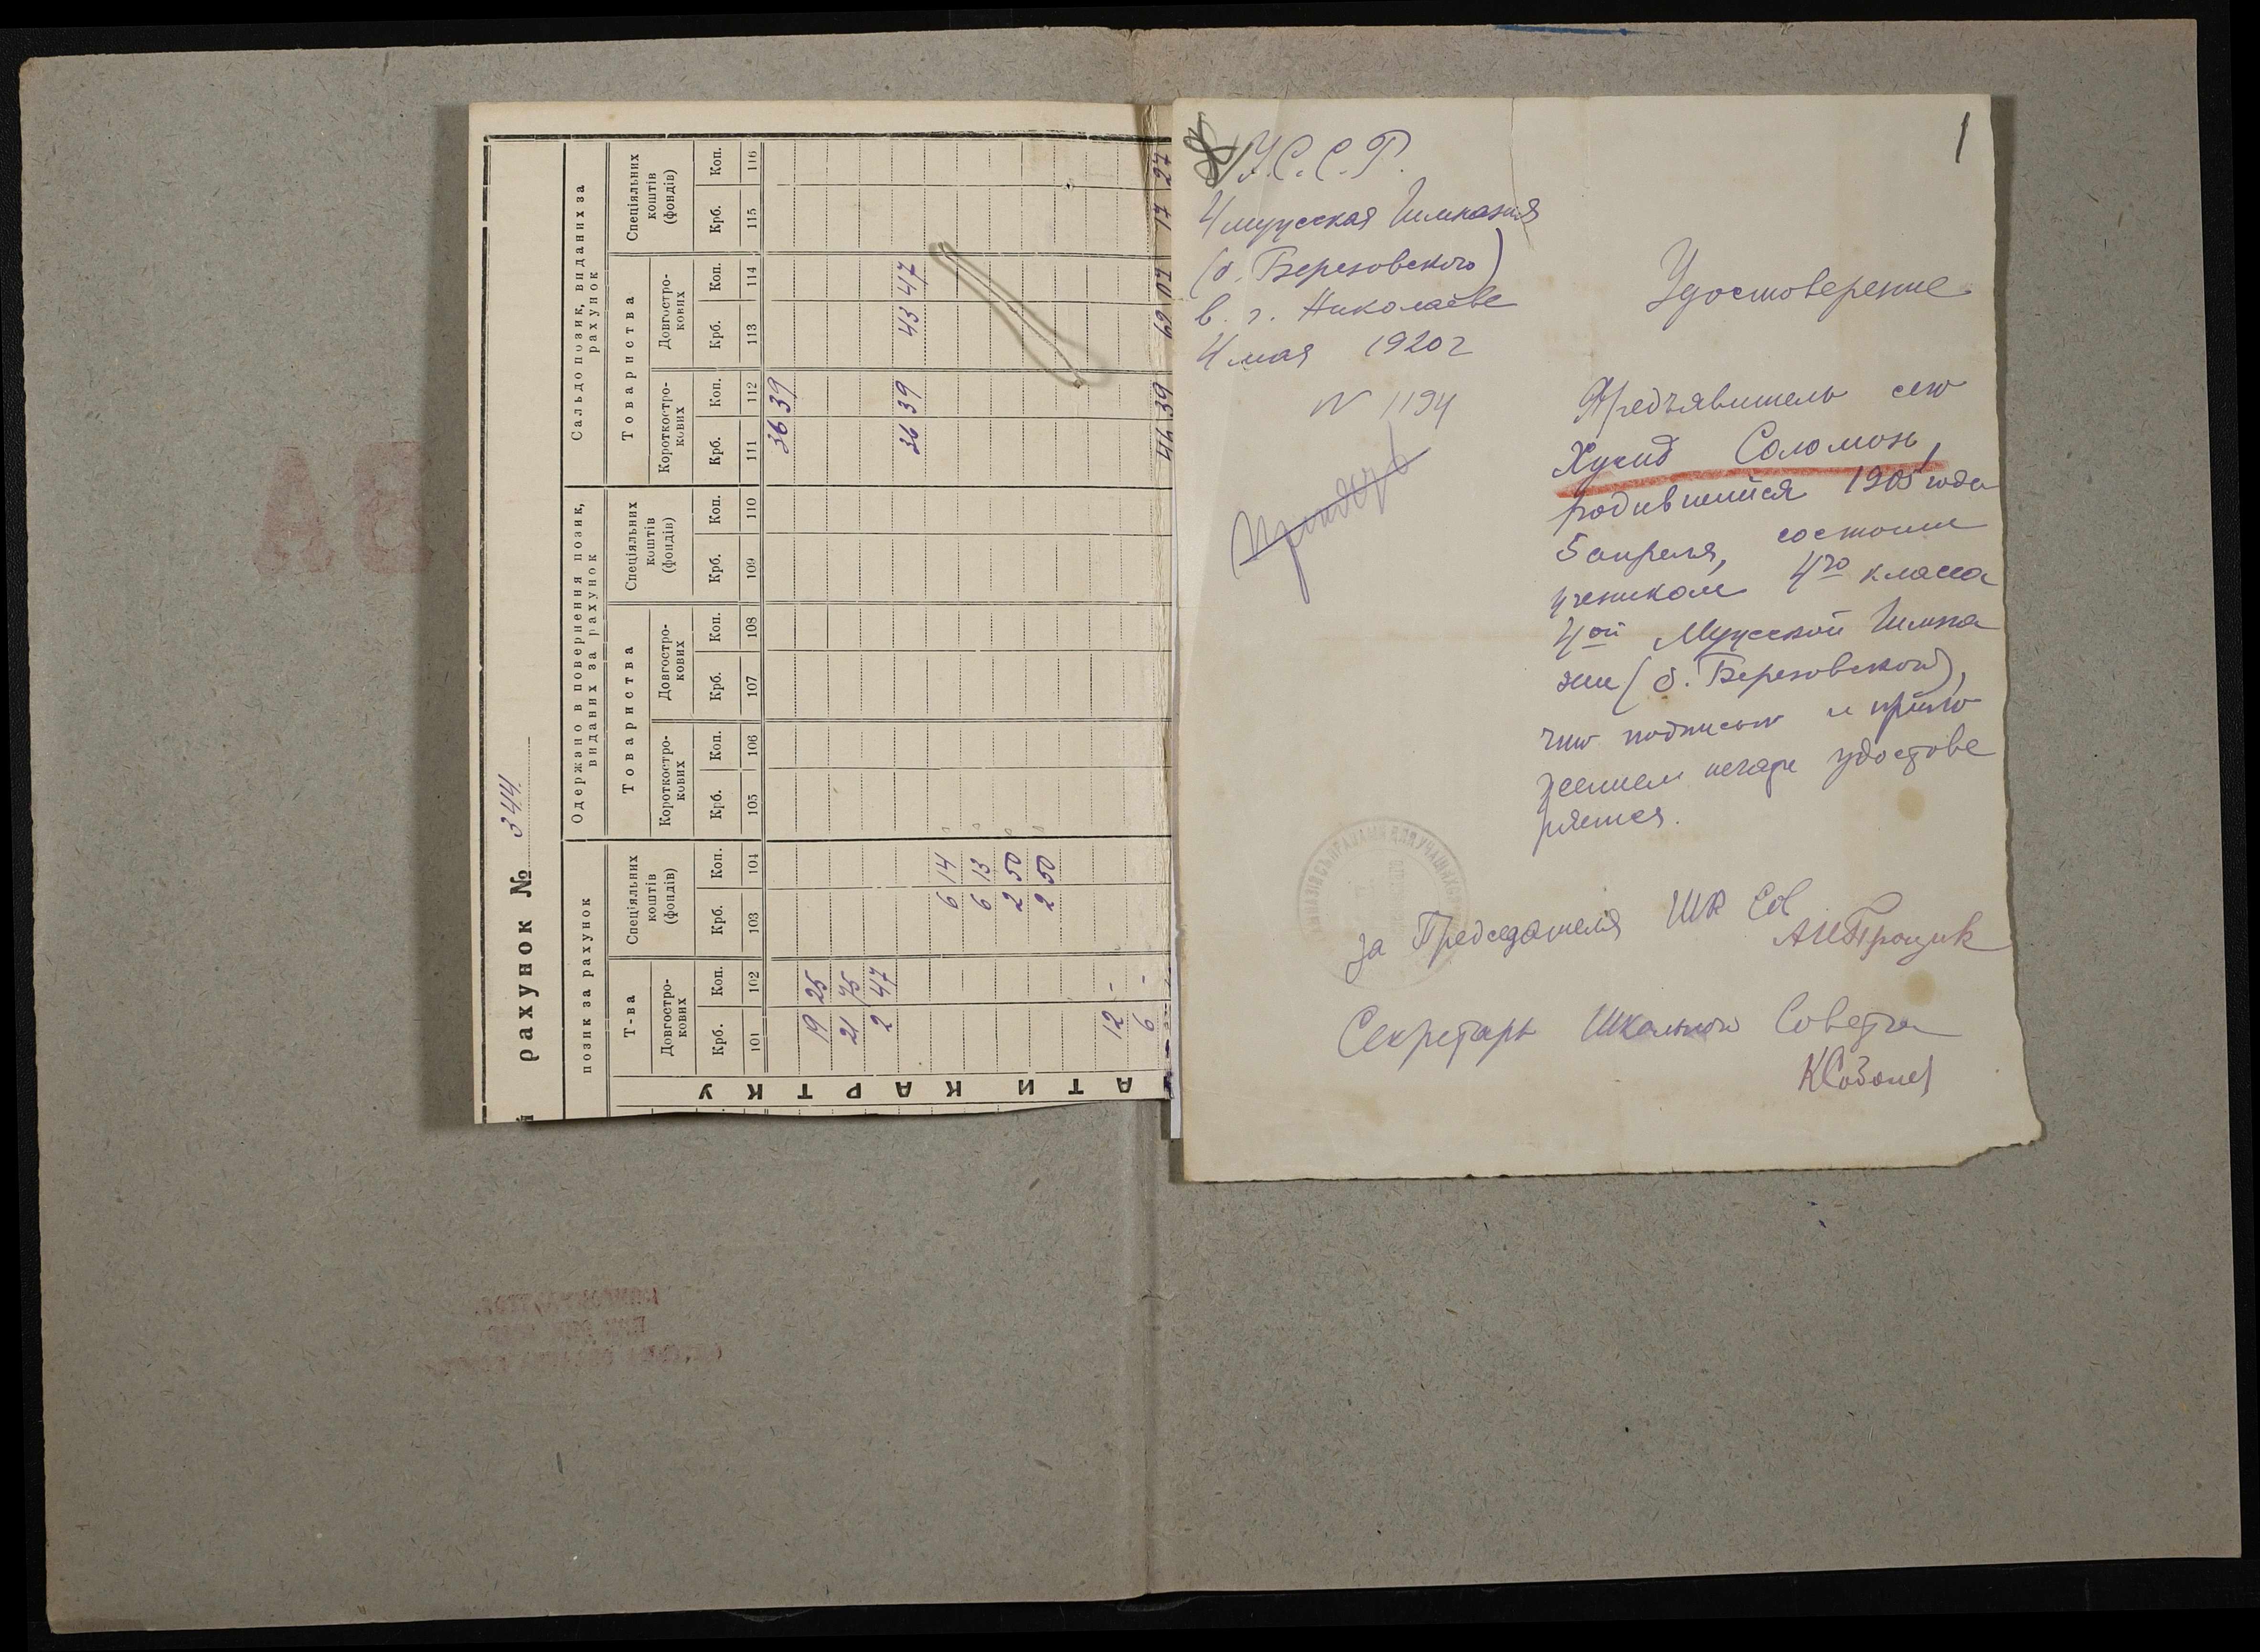 рахунок № 344
позик за рахунок
Одержано в повернення позик, виданих за рахунок
Сальдо позик, виданих за рахунок
Т-ва
Спеціяльних коштів (фондів)
Товариства
Спеціяльних коштів (фондів)
Товариства
Спеціяльних коштів (фондів)
Довгостро-кових
Короткостро-кових
Довгостро-кових
Короткостро-кових
Довгостро-кових
Крб. Коп. Крб. Коп. Крб. Коп. Крб. Коп. Крб. Коп. Крб. Коп. Крб. Коп. Крб. Коп.
101 102 103 104 105 106 107 108 109 110 111 112 113 114 115 116
36 39
19 25
21 75
2 47
36 39 43 47
6 14
6 13
2 50
2 50
12 -
6 -
44 39 69 07 17 27
АТИ КАРТКУ
1
У.С.С.Р.
4 мужская Гимназия
(б. Березовского)
в г. Николаеве
4 мая 1920 г
N 1194
Удостоверение
Предъявитель сего
Хусид Соломон,
родившийся 1905 года
5 апреля, состоит
учеником 4го класса
4ой Мужской Гимна
зии (б. Березовского),
что подписью и прило
жением печати удостове
ряется.
За Председателя Шк Сов
Секретарь Школьного Совета